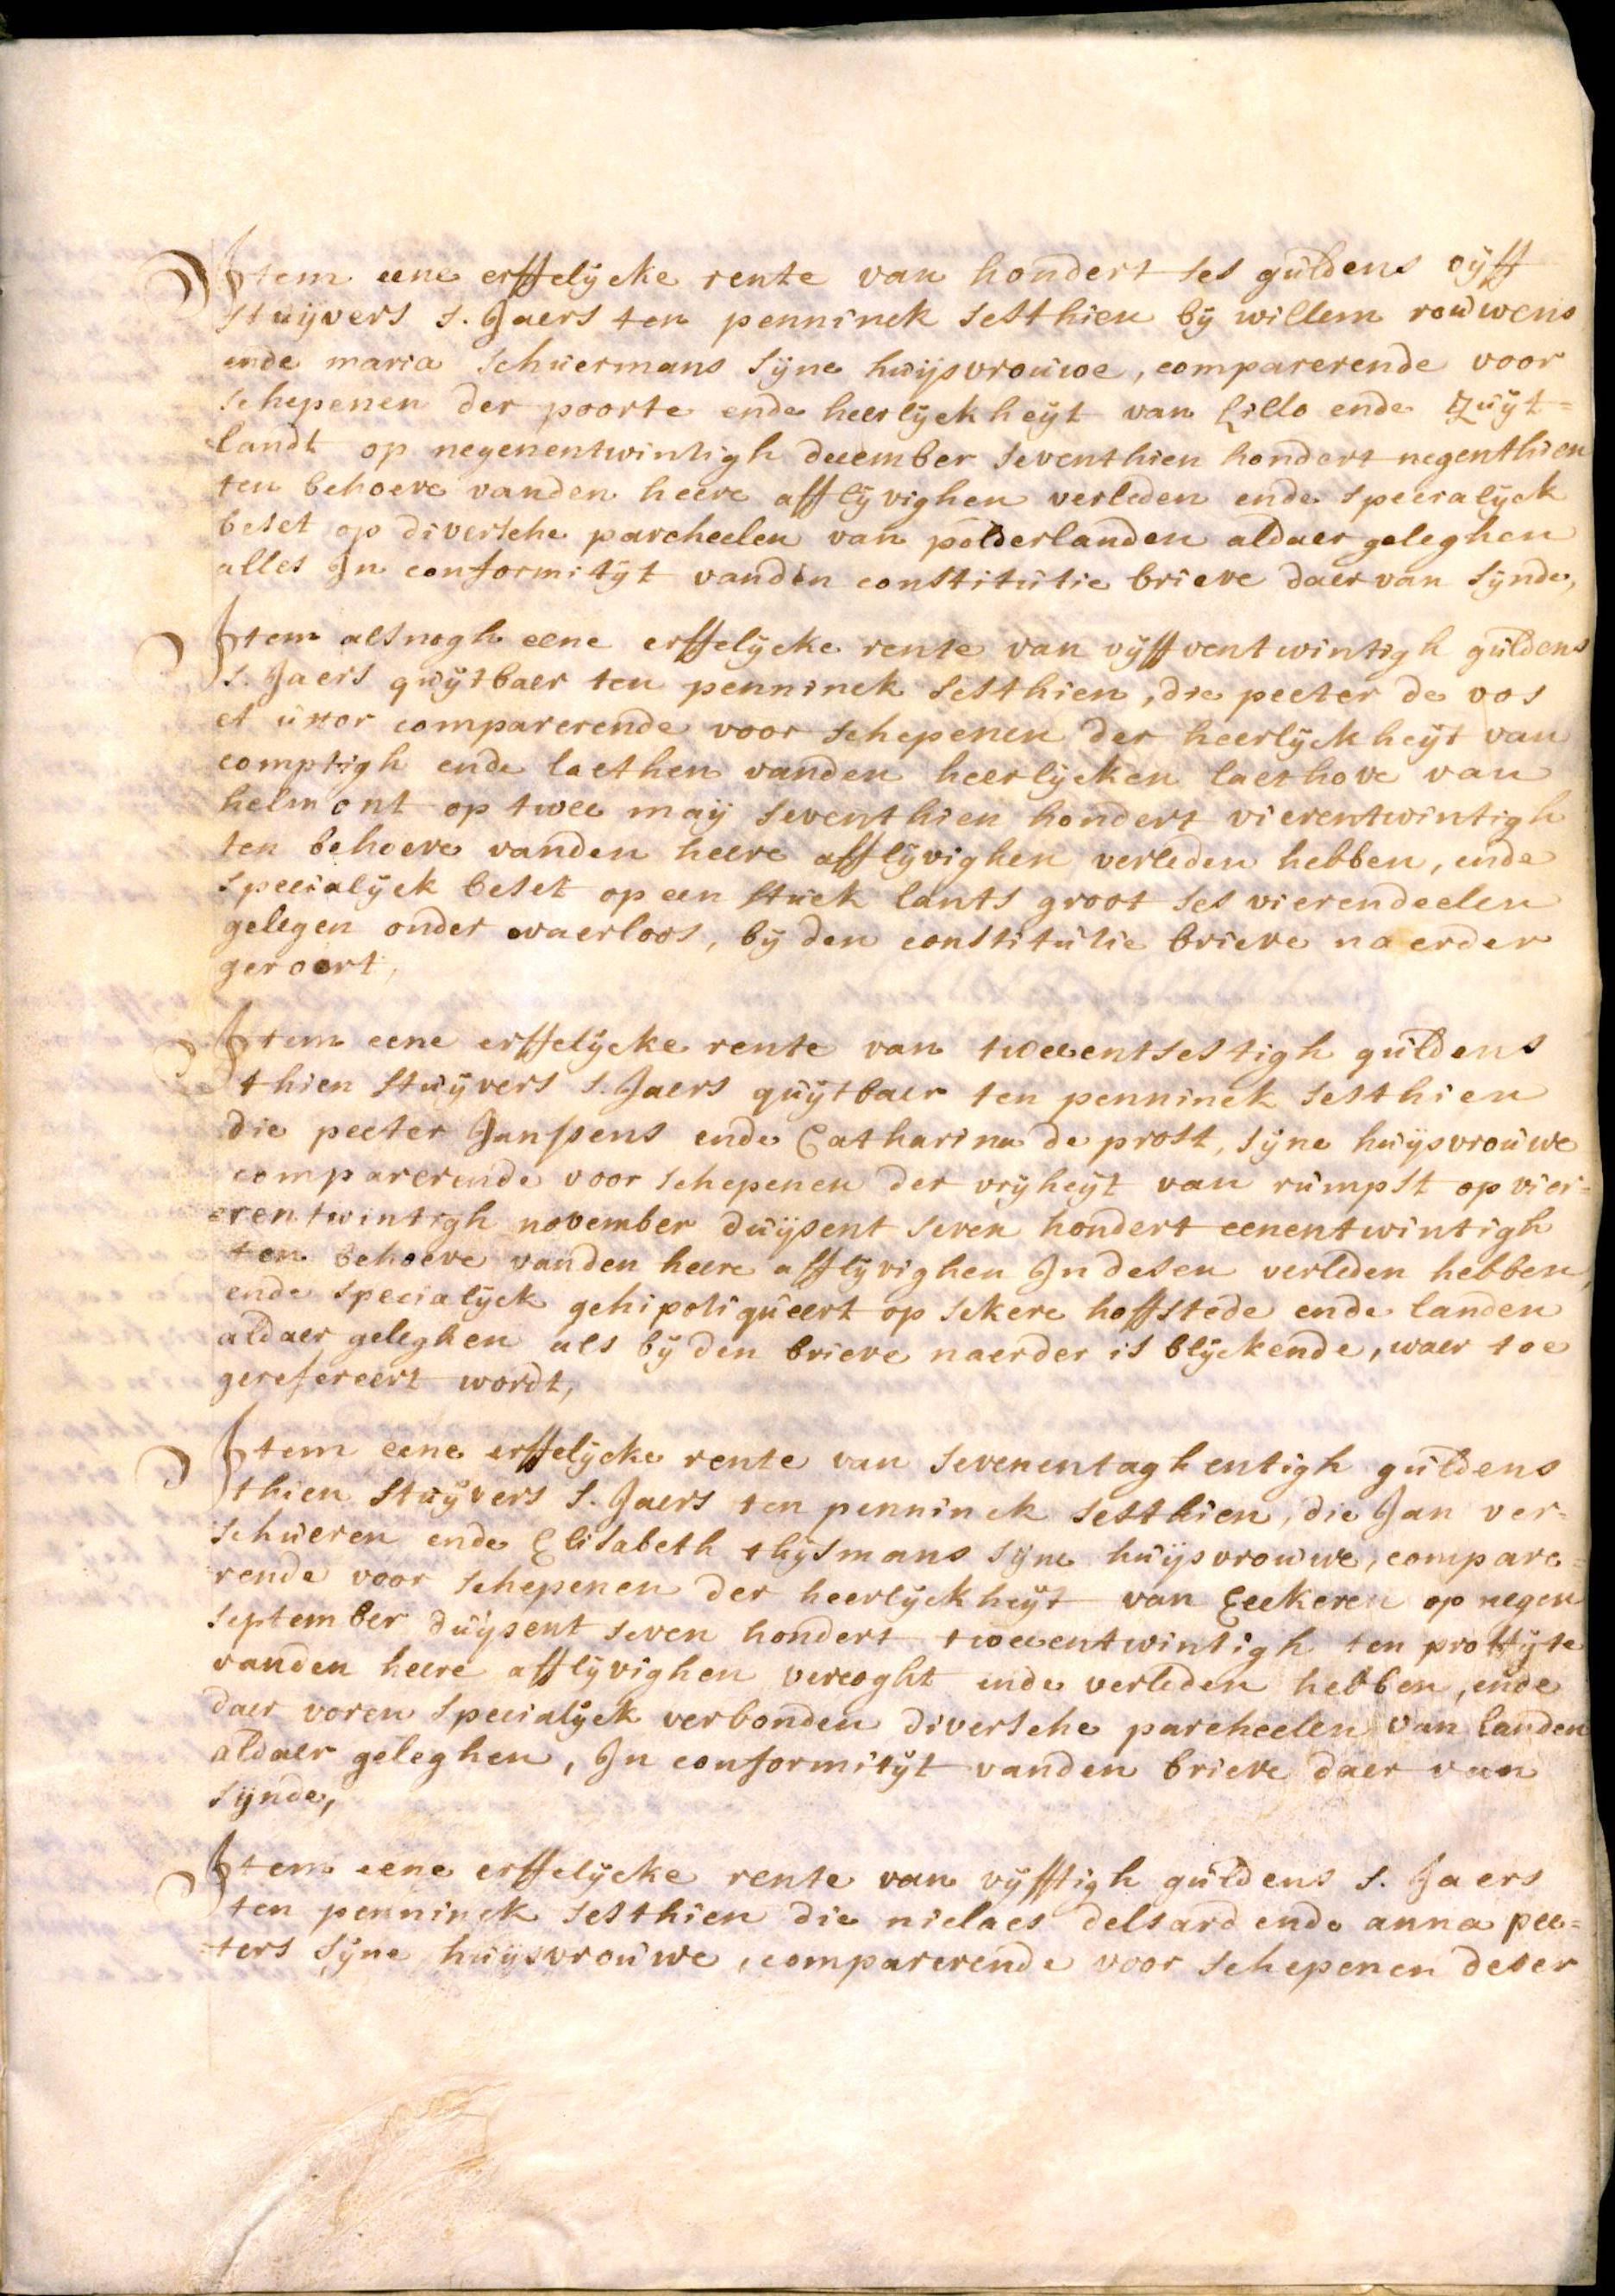 Item eene erffelÿcke rente van hondert ses guldens vÿff
stuÿvers s. Jaers ten penninck sesthien bÿ willem rouwens
ende maria schuermans sÿne huÿsvrouwe, comparerende voor
schepenen der poorte ende heerlÿckheÿt van Lillo ende Zuÿt=
landt op negenentwintigh december seventhien hondert negenthien
ten behoeve vanden heere afflÿvighen verleden ende specialÿck
beset op diversche parcheelen van polderlanden aldaer geleghen
alles In conformitÿt vanden constitutie brieve daer van sÿnde,
Item alsnogh eene erffelÿcke rente van vÿffventwintigh guldens
s. Jaers quÿtbaer ten penninck sesthien, die peeter de vos
et uxor comparerende voor schepenen der heerlÿckheÿt van
comptigh ende laethen vanden heerlÿcken laethove van
helmont op twee maÿ seventhien hondert vierentwintigh
ten behoeve vanden heere afflÿvighen verleden hebben, ende
specialÿck beset op een stuck lants groot ses vierendeelen
gelegen onder waerloos, bÿ den constitutie brieve naerder
geroert,
Item eene erffelÿcke rente van tweeentsestigh guldens
thien stuÿvers s. Jaers quÿtbaer ten penninck sesthien
die peeter Janssens ende Catharina de prost, sÿne huÿsvrouwe
comparerende voor schepenen der vrÿheÿt van rumpst op vier=
erentwintigh november duÿsent seven hondert eenentwintigh
ten behoeve vanden heere afflÿvighen In desen verleden hebben,
ende specialÿck gehipotiqueert op sekere hoffstede ende landen
aldaer geleghen als bÿ den brieve naerder is blÿckende, waer toe
gerefereert wordt,
Item eene erffelÿcke rente van sevenentaghentigh guldens
thien stuÿvers s. Jaers ten penninck sesthien, die Jan ver=
schueren ende Elisabeth thÿsmans sÿne huÿsvrouwe, compare=
rende voor schepenen der heerlÿckheÿt van Eeckeren op negen
september duÿsent seven hondert tweeentwintigh ten proffÿte
vanden heere afflÿvighen vercoght ende verleden hebben, ende
daer voren specialÿck verbonden diversche parcheelen van landen
aldaer geleghen, In conformitÿt vanden brieve daer van
sÿnde,
Item eene erffelÿcke rente van vÿfftigh guldens s. Jaers
ten penninck sesthien die nielaes delsard ende anna pee=
ters sÿne huÿsvrouwe, comparerende voor schepenen deser